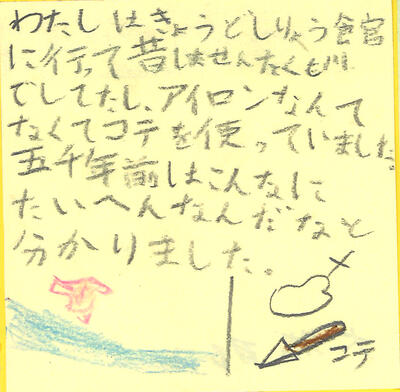 わたしはきょうどしりょう食官
に行って昔しませんたくも川
でしてたし、アイロンなんて
なくてコテを使っていました。
五千年前はこんなに
たいへんなんだなと
分かりました。
コテ